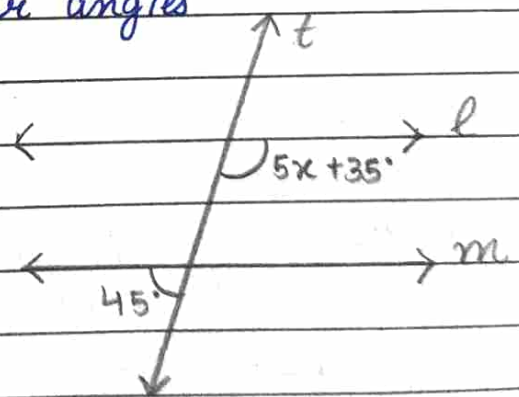 angles
t
l
5x +35°
m
45°